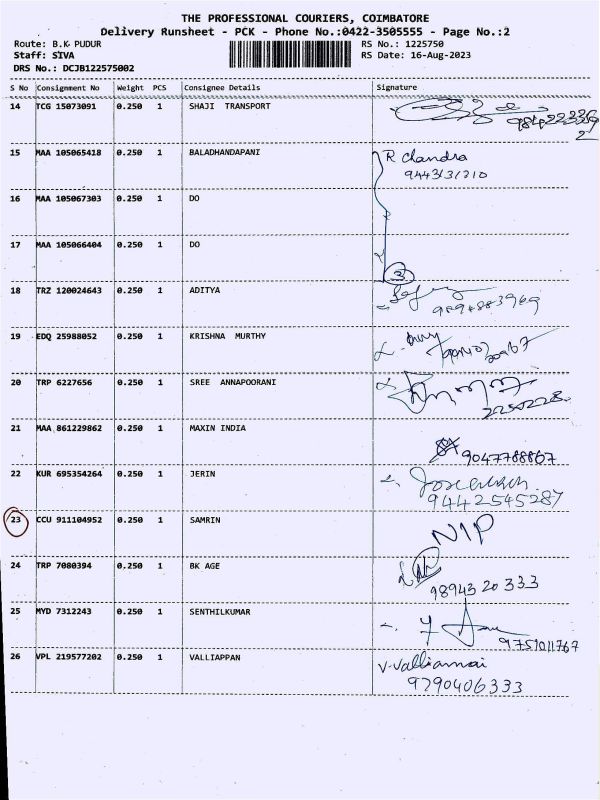 THE PROFESSIONAL COURIERS, COIMBATORE
Delivery Runsheet - PCK - Phone No.:0422-3505555 - Page No.:2
Route: B.K PUDUR RS No.: 1225750
Staff: SIVA RS Date: 16-Aug-2023
DRS No.: DCJB122575002
S No Consignment No Weight PCS Consignee Details Signature
14 TCG 15073091 0.250 1 SHAJI TRANSPORT
15 MAA 105065418 0.250 1 BALADHANDAPANI R Chandra
9443131210
16 MAA 105067303 0.250 1 DO
17 MAA 105066404 0.250 1 DO
3
18 TRZ 120024643 0.250 1 ADITYA
9894883969
19 EDQ 25988052 0.250 1 KRISHNA MURTHY
20 TRP 6227656 0.250 1 SREE ANNAPOORANI
21 MAA 861229862 0.250 1 MAXIN INDIA
9047788867
22 KUR 695354264 0.250 1 JERIN
9442545287
23 CCU 911104952 0.250 1 SAMRIN NIP
24 TRP 7080394 0.250 1 BK AGE
98943 20 333
25 MYD 7312243 0.250 1 SENTHILKUMAR
9751011767
26 VPL 219577202 0.250 1 VALLIAPPAN V.Valliamai
9790406333